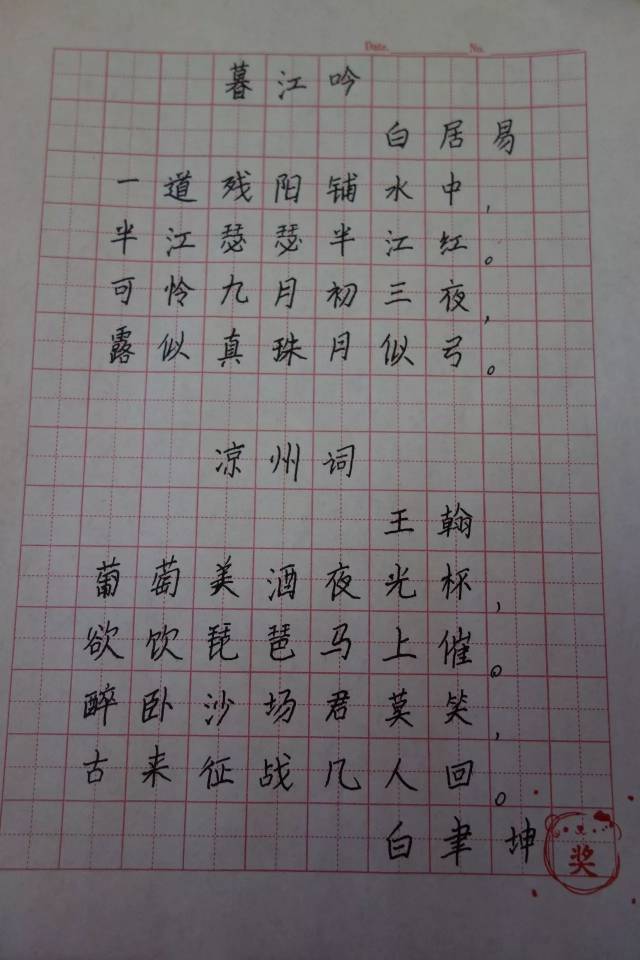 Date. No.
暮江吟
白居易
一道残阳铺水中，
半江瑟瑟半江红。
可怜九月初三夜，
露似真珠月似弓。
凉州词
王翰
葡萄美酒夜光杯，
欲饮琵琶马上催。
醉卧沙场君莫笑，
古来征战几人回。
白聿坤
奖